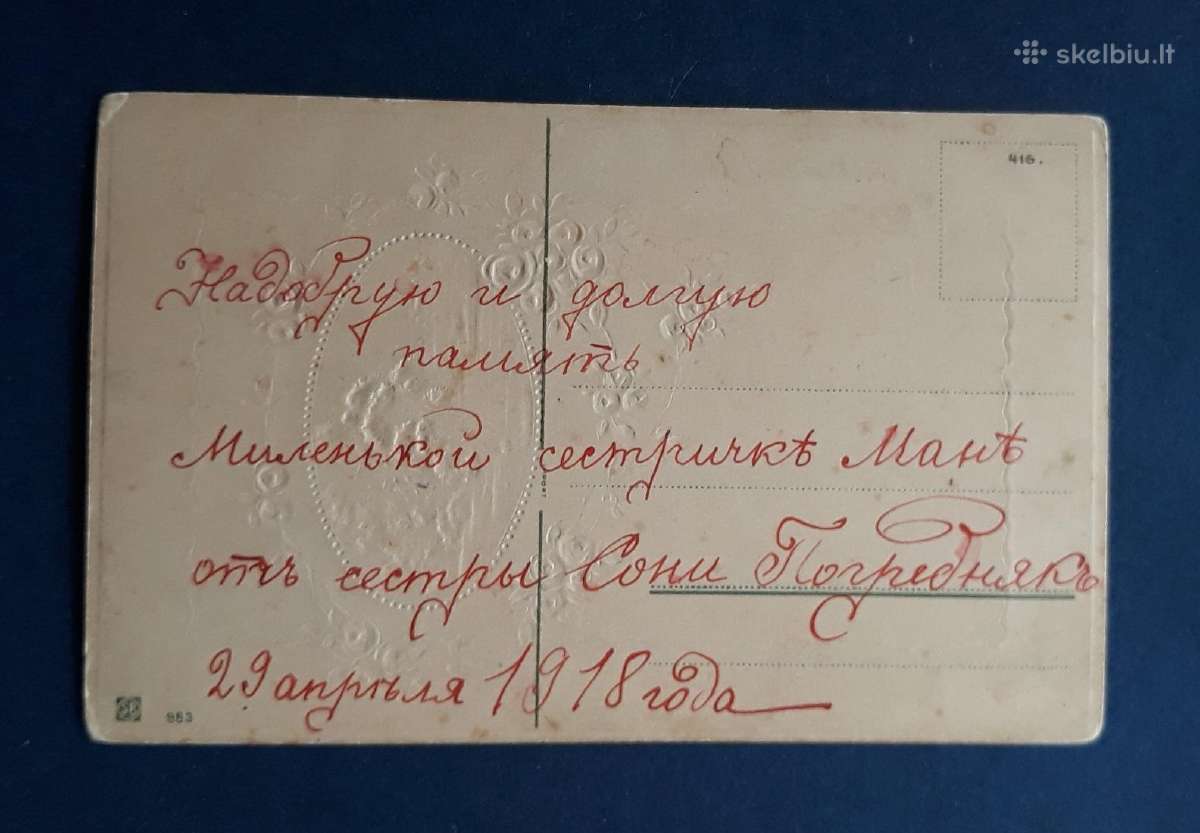 skelbiu.lt
416.
Надобрую и долгую
память
Миленькой сестричкѣ Манѣ
отъ сестры Сони Погребнякъ
29 апрѣля 1918 года
983